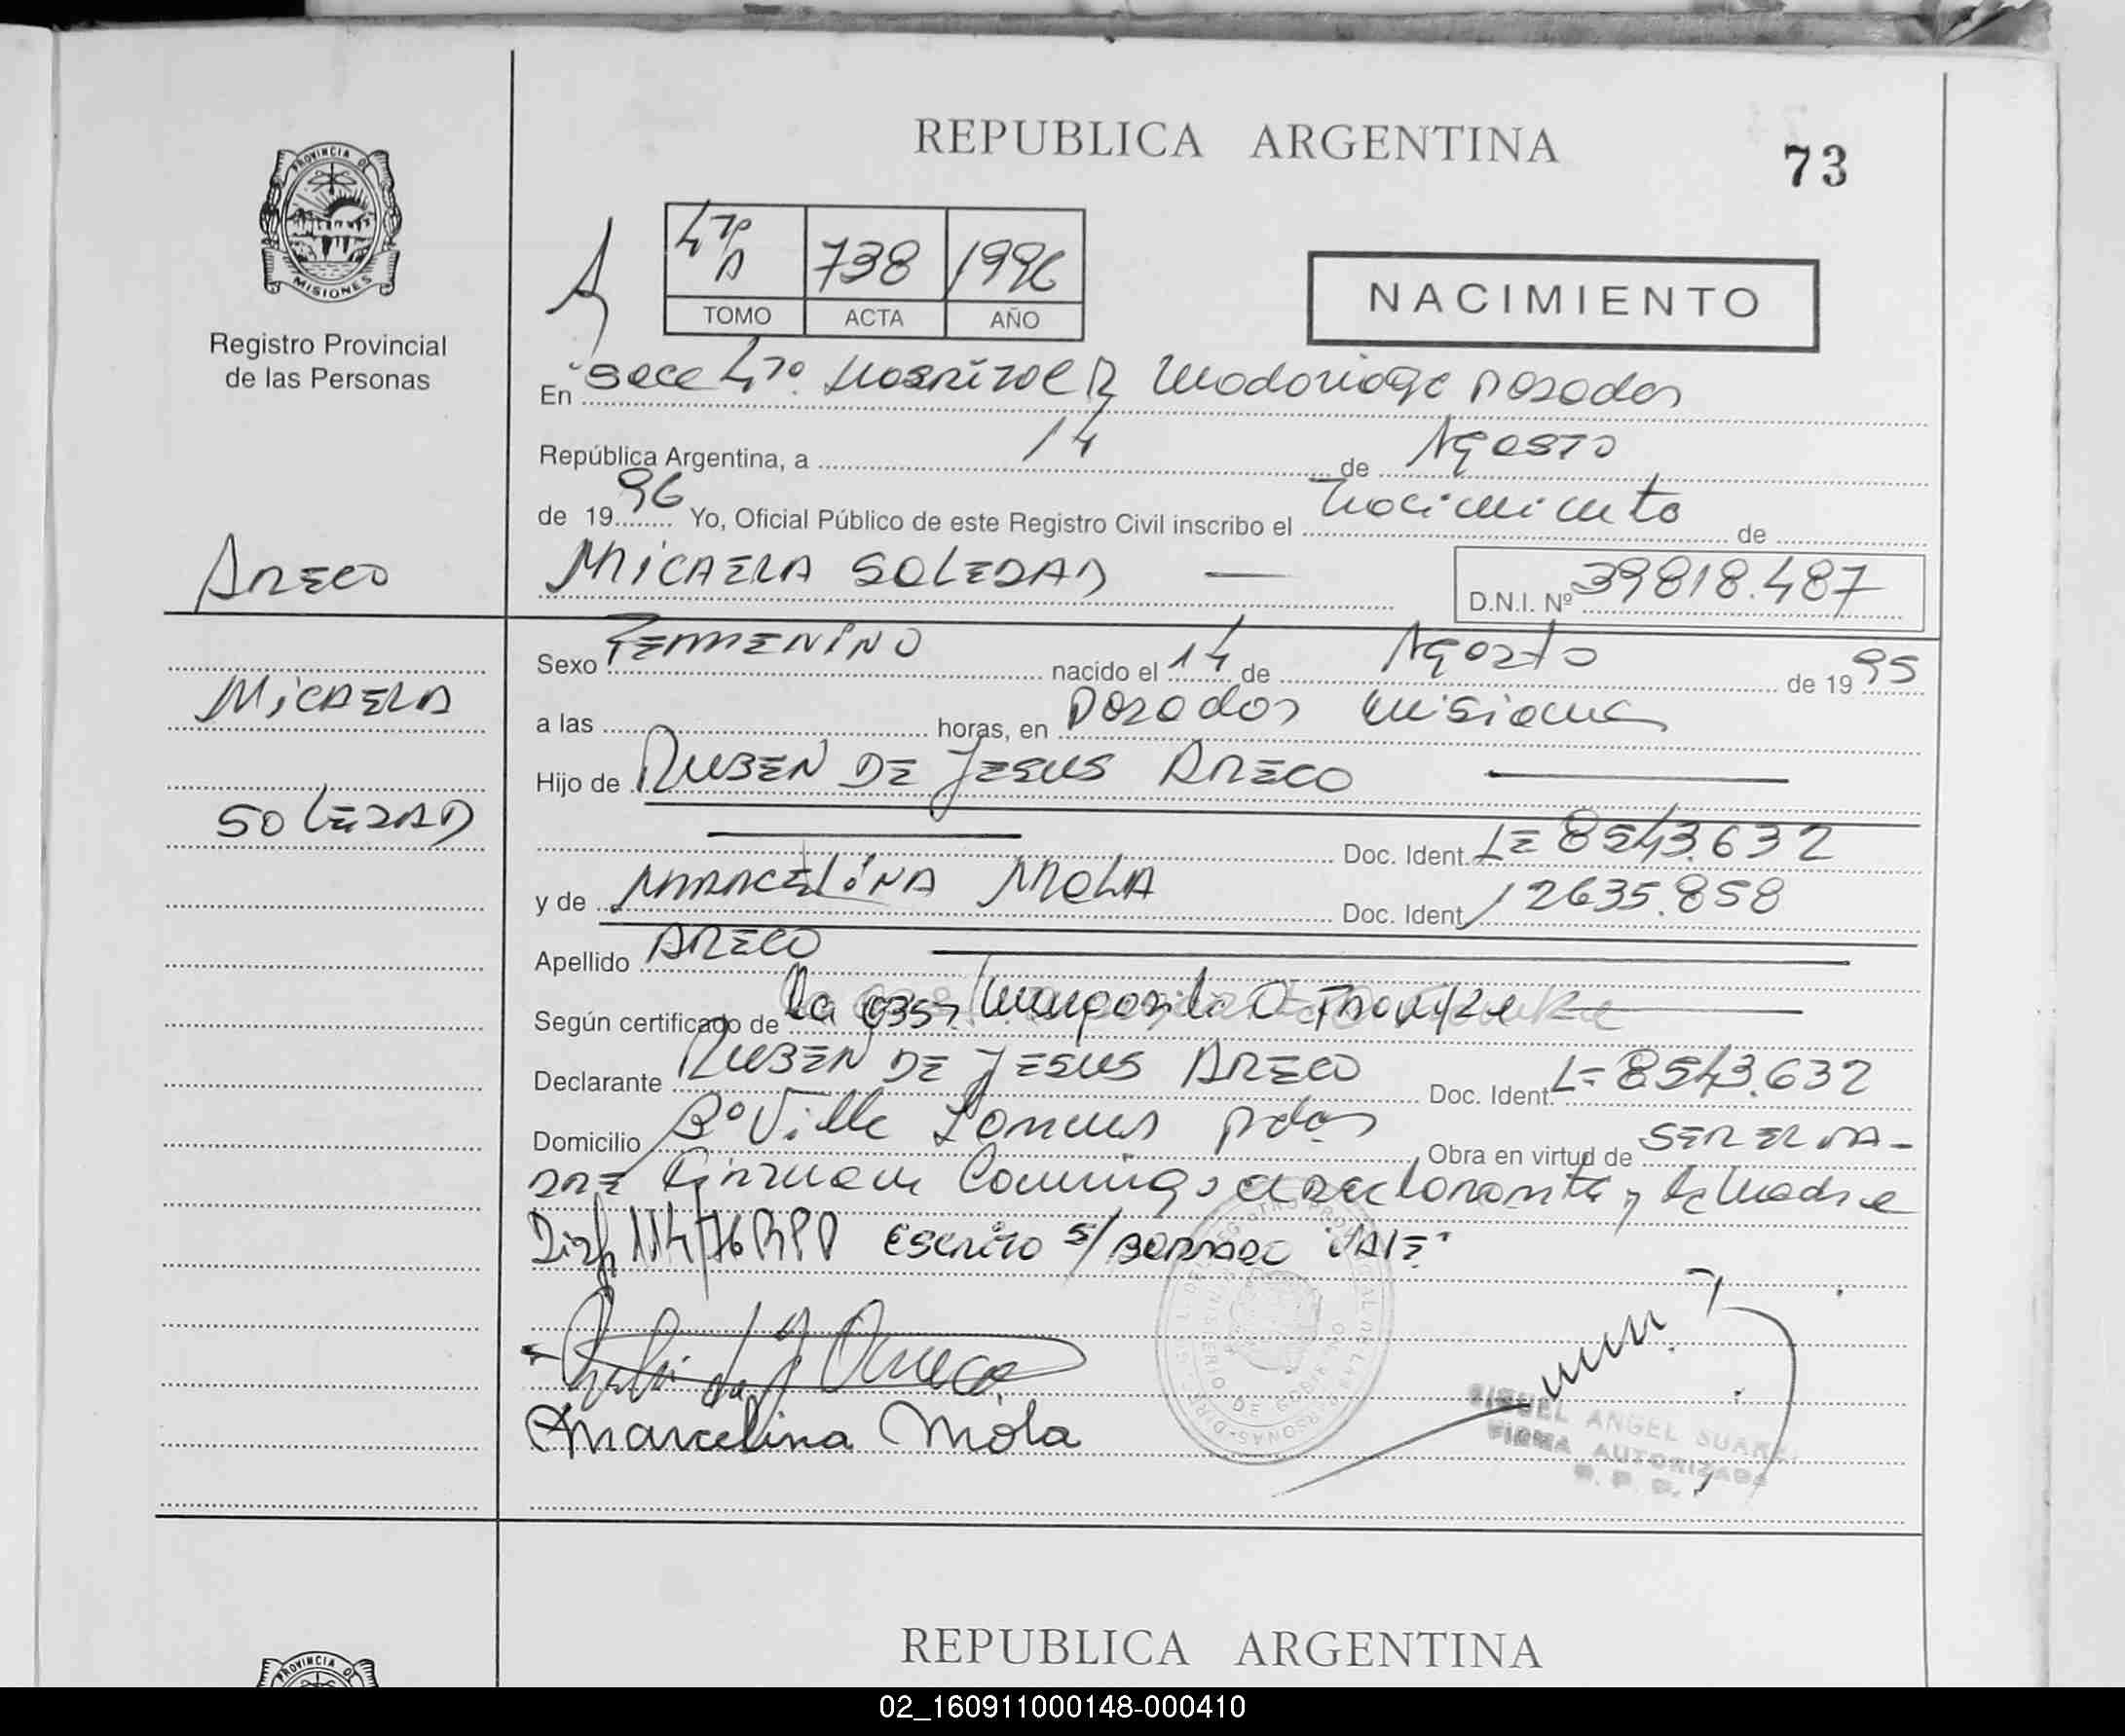 REPUBLICA ARGENTINA
73
PROVINCIA DE
MISIONES
Registro Provincial
de las Personas
4ºP A 738 1996
TOMO ACTA AÑO
NACIMIENTO
En Secc 4ta. Hospital R Madariaga Posadas
República Argentina, a 14 de Agosto
de 1996 Yo, Oficial Público de este Registro Civil inscribo el nacimiento de
ARECO
MICAELA SOLEDAD — D.N.I. Nº 39818.487
Sexo FEMMENINO nacido el 14 de Agosto de 1995
MICAELA
a las horas, en Posadas Misiones
Hijo de RUBEN DE JESUS ARECO
SOLEDAD
Doc. Ident. LE 8543.632
y de MARCELINA MOLA Doc. Ident 12635.858
Apellido ARECO
Según certificado de la Obst Margarita
Declarante RUBEN DE JESUS ARECO Doc. Ident. L= 8543.632
Domicilio Bº Villa Pdas Obra en virtud de SER EL PA-
DRE Firman Conmigo el declarante y la Madre
Disp 114/76 RPP Escrito s/ BORRADO VALE
Marcelina Mola
MIGUEL ANGEL SUAREZ
FIRMA AUTORIZADA
R. P. P.
REPUBLICA ARGENTINA
PROVINCIA DE
02_160911000148-000410